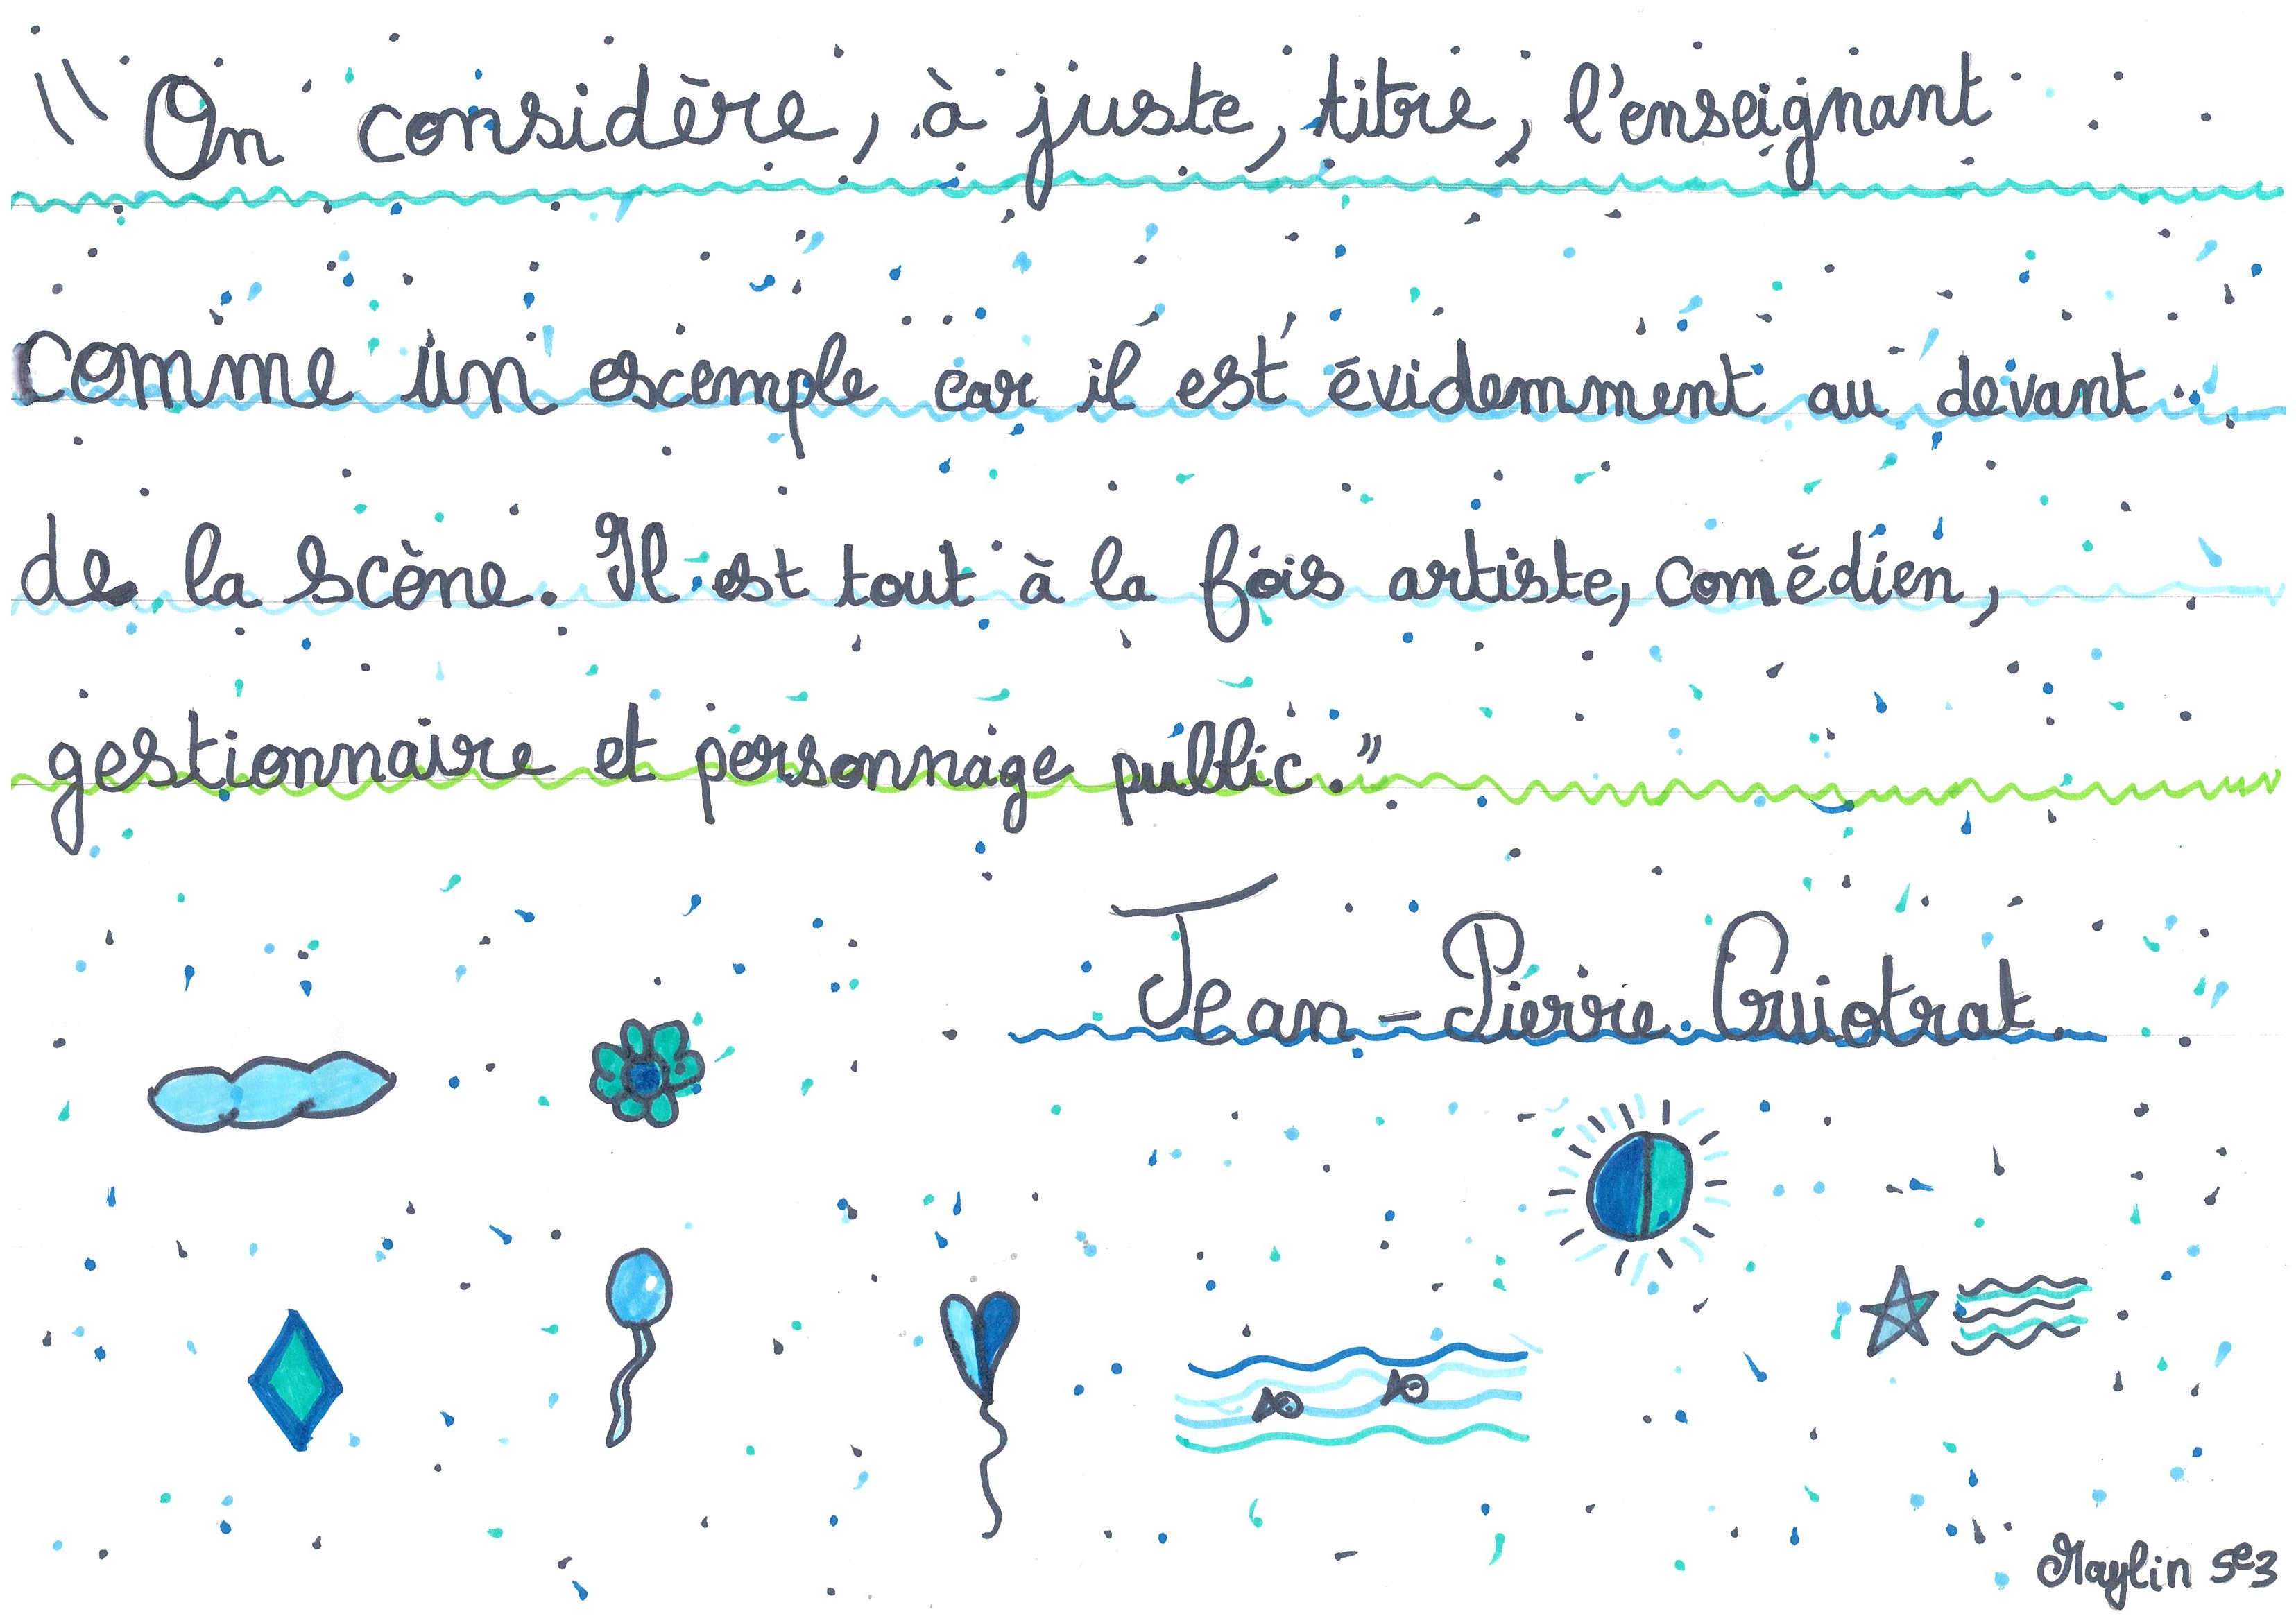 "On considère, à juste, titre, l'enseignant
comme un excemple car il est évidemment au devant
de la scène. Il est tout à la fois artiste, comédien,
gestionnaire et personnage public."
Jean-Pierre Guiotrat.
Maylin 5e3